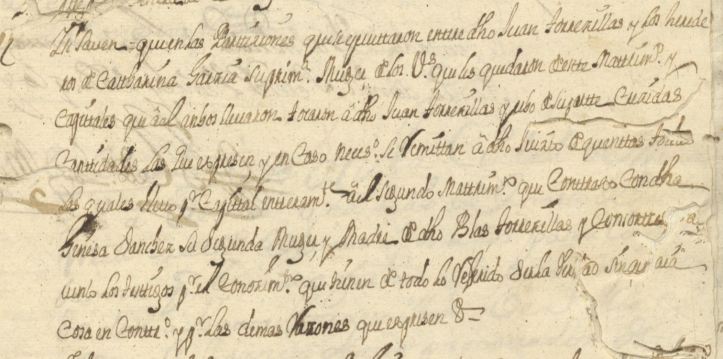 Si saven que en las Particiones que se ejecutaron entre dho Juan Torrecillas y los herede
ros de Catharina Garcia su prim.ª Muger de los V.s que les quedaron de este Matrim.º y
Capitales que a el anbos llevaron tocaron a dho Juan Torrecillas y ubo de su parte Crecidas
Cantidades las que expresen y en Caso neces.º se remittan a dho de quenttas
las quales llevo p.r Capital enteram.te a el Segundo Mattrim.º que Contrajo Con dha
Ginesa Sanchez su Segunda Muger, y Madre de dho Blas Torrecillas y Consortte
los testigos p.r el Conozim.to que tienen de todo lo Referido
Cosa en Contt.º y p.r las demas Razones que expresen &